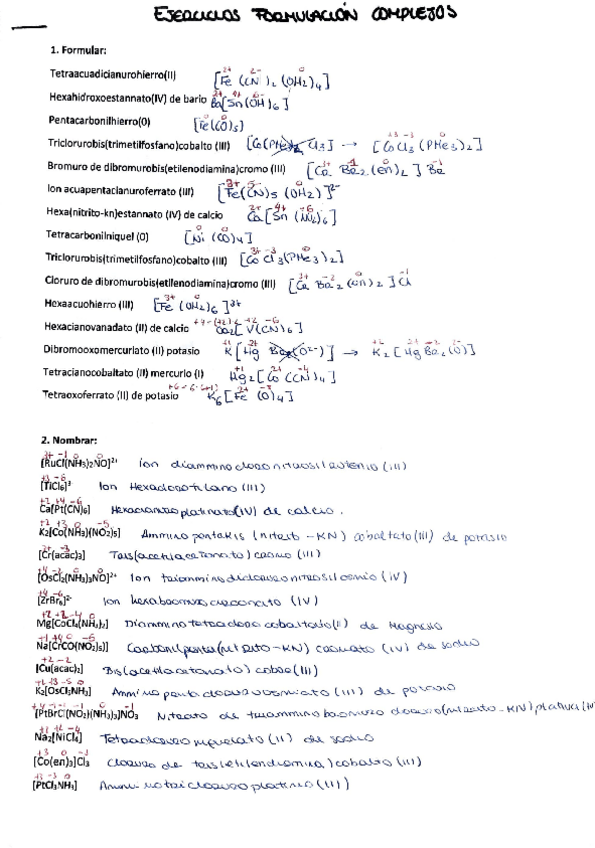 EJERCICIOS FORMULACIÓN COMPLEJOS
1. Formular:
Tetraacuadicianurohierro(II) [Fe (CN)2 (OH2)4]
Hexahidroxoestannato(IV) de bario Ba[Sn(OH)6]
Pentacarbonilhierro(0) [Fe(CO)5]
Triclorurobis(trimetilfosfano)cobalto (III) → [CoCl3 (PMe3)2]
Bromuro de dibromurobis(etilenodiamina)cromo (III) [Cr Br2 (en)2] Br
Ion acuapentacianuroferrato (III) [Fe(CN)5 (OH2)]2-
Hexa(nitrito-kn)estannato (IV) de calcio Ca[Sn (NO2)6]
Tetracarbonilniquel (0) [Ni (CO)4]
Triclorurobis(trimetilfosfano)cobalto (III) [Co Cl3(PMe3)2]
Cloruro de dibromurobis(etilenodiamina)cromo (III) [Cr Br2 (en)2] Cl
Hexaacuohierro (III) [Fe (OH2)6]3+
Hexacianovanadato (II) de calcio Ca2[V(CN)6]
Dibromooxomercuriato (II) potasio → K2 [Hg Br2 (O)]
Tetracianocobaltato (II) mercurio (I) Hg2 [Co (CN)4]
Tetraoxoferrato (II) de potasio K6[Fe (O)4]
2. Nombrar:
[RuCl(NH3)2NO]2+ Ion diamminocloronitrosilrutenio (III)
[TiCl6]3- Ion Hexaclorotitano (III)
Ca[Pt(CN)6] Hexacianoplatinato(IV) de calcio.
K2[Co(NH3)(NO2)5] Ammino pentakis (nitrito-KN) cobaltato(III) de potasio
[Cr(acac)3] Tris(acetilacetonato) cromo (III)
[OsCl2(NH3)3NO]2+ Ion triamminodicloronitrosilosmio (IV)
[ZrBr6]2- Ion hexabromocirconato (IV)
Mg[CoCl4(NH3)2] Diamminotetracloro de Magnesio
Na[CrCO(NO2)5)] Carbonilpenta(nitrito-KN) cromato (IV) de sodio
[Cu(acac)2] Bis(acetilacetonato) cobre(II)
K2[OsCl5NH3] Ammino pentacloroosmiato (III) de potasio
[PtBrCl(NO2)(NH3)3]NO3 Nitrato de triamminobromuro cloruro(nitrito-KN)platino
Na2[NiCl4] Tetracloroniquelato (II) de sodio
[Co(en)3]Cl3 cloruro de tris(etilendiamina) cobalto (III)
[PtCl3NH3] Amminotricloroplatino (III)